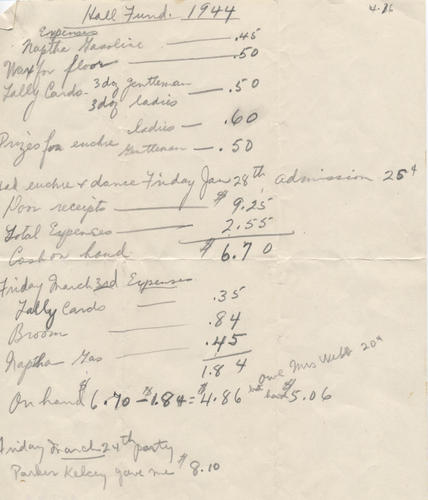 Hall Fund. 1944
4.86
Expenses
Naptha Gasoline — .45
Wax for floor — .50
Tally Cards - 3 doz gentleman — .50
3 doz ladies
Prizes for euchre ladies — .60
Gentleman — .50
Had euchre & dance Friday Jan 28th, admission 25¢
Door receipts — $9.25
Total Expenses — 2.55
Cash on hand $6.70
Friday March 3rd Expenses
Tally Cards — .35
Broom — .84
Naptha Gas — .45
1.84
On hand $6.70 - 1.84 = $4.86
owe Mrs Webb 20¢
$5.06
Friday March 24th party
Parker Kelcey gave me $8.10